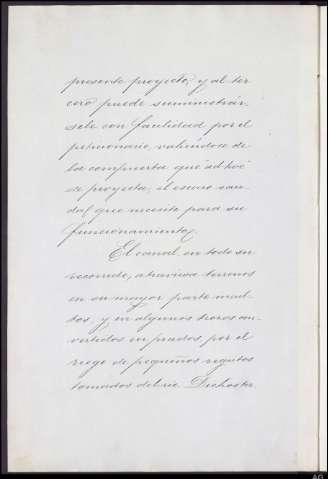 presente proyecto, y al ter
cero puede suministrár-
sele con facilidad por el
peticionario, valiéndose de
la compuerta que ad hoc
se proyecta, el escaso cau-
dal que necesita para su
funcionamiento.
El canal, en todo su
recorrido, atraviesa terrenos
en su mayor parte incul-
tos, y en algunos trozos con-
vertidos en prados, por el
riego de pequeños regatos
tomados del río. Dichos te-